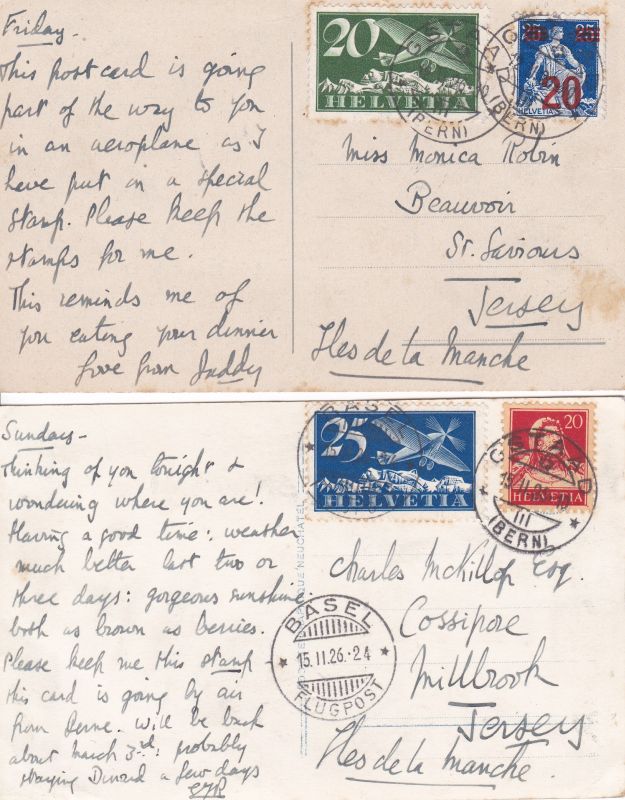 Friday -
This postcard is going
part of the way to you
in an aeroplane as I
have put in a special
stamp. Please keep the
stamps for me.
This reminds me of
you eating your dinner
Love from Daddy
20
HELVETIA
25 25
20
HELVETIA
GSTAAD
(BERN)
GSTAAD
(BERN)
Miss Monica Robin
Beauvoir
St. Saviours
Jersey
Iles de la Manche
Sunday -
Thinking of you tonight &
wondering where you are!
Having a good time: weather
much better last two or
three days: gorgeous sunshine:
both as brown as berries.
Please keep me this stamp
this card is going by air
from Berne. Will be back
about March 3rd: probably
staying Dinard a few days
BASEL
25
HELVETIA
20
HELVETIA
GSTAAD
15.II.26
III
(BERN)
BASEL
15.II.26.-24
FLUGPOST
Charles McKillop Esq.
Cossipore
Millbrook
Jersey
Iles de la Manche.